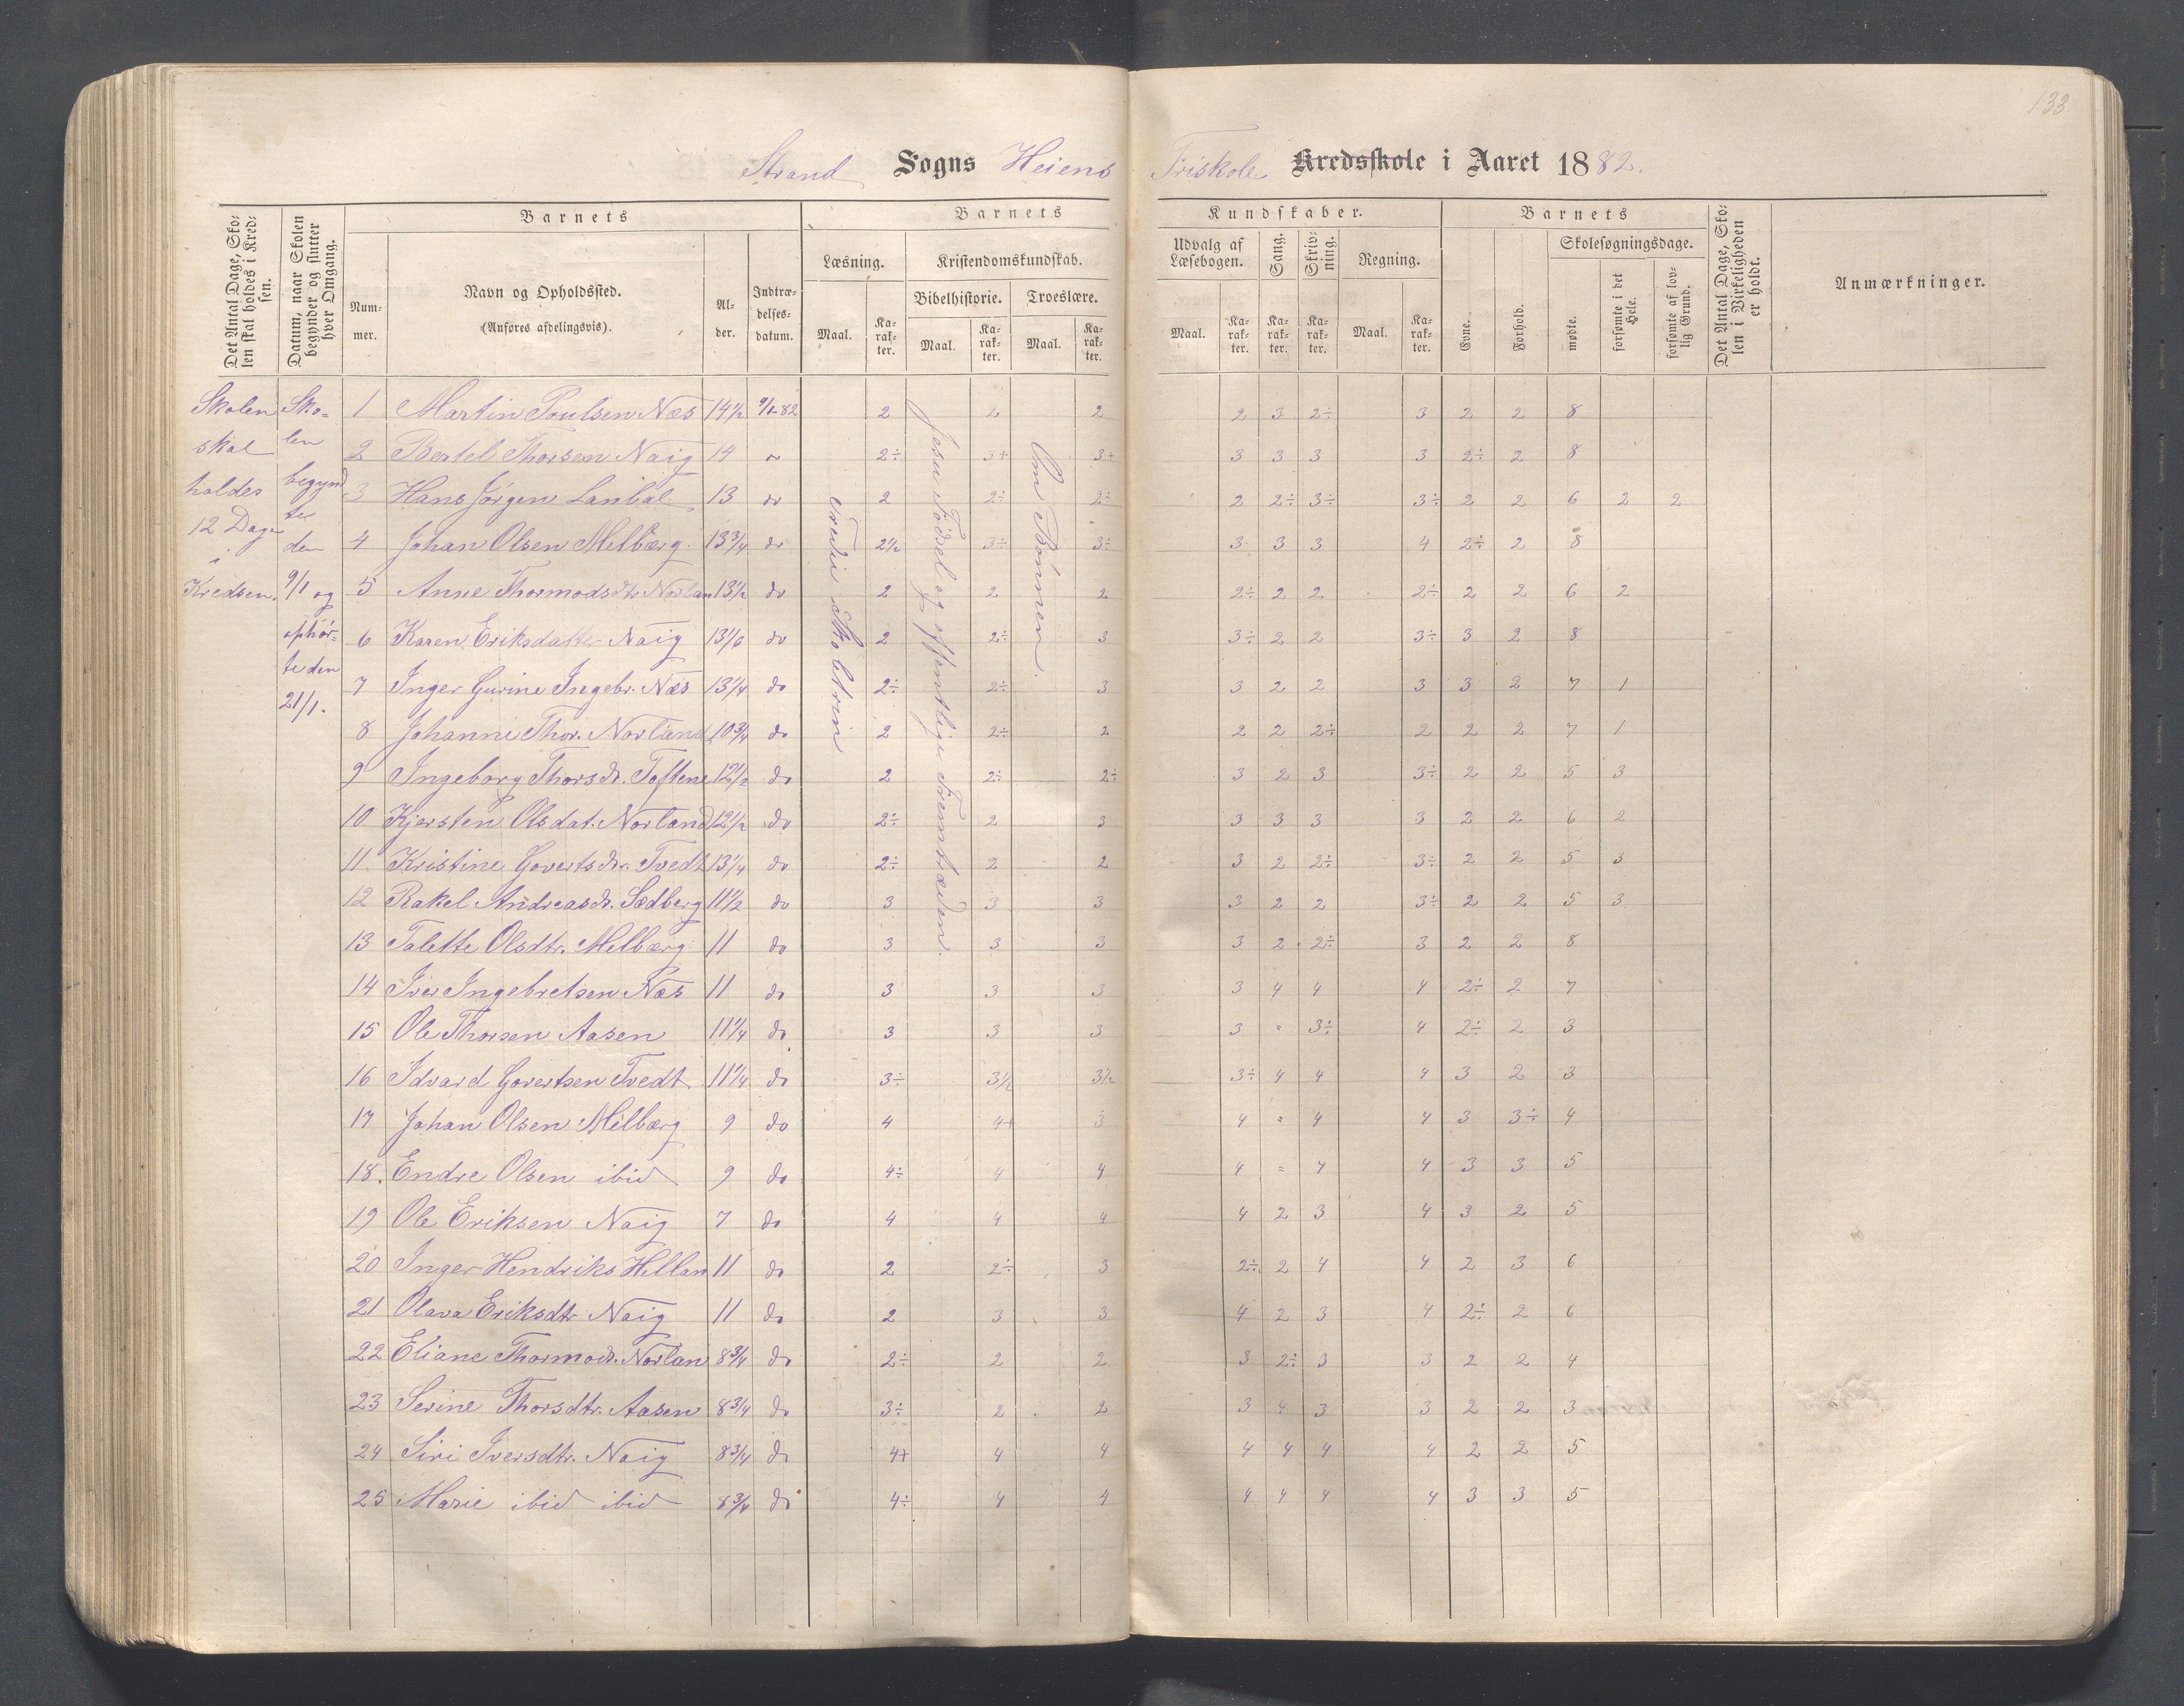 133
Strand Sogns Heiens Friskole Kredsskole i Aaret 1882.
Det Antal Dage, Skolen skal holdes i Kredsen.
Datum, naar Skolen begynder og slutter hver Omgang.
Barnets
Nummer.
Navn og Opholdssted.
(Anføres afdelingsvis).
Alder.
Indtrædelsesdatum.
Barnets Kundskaber.
Læsning.
Maal. Karakter.
Kristendomskundskab.
Bibelhistorie. Troeslære.
Maal. Karakter. Maal. Karakter.
Udvalg af Læsebogen.
Maal. Karakter.
Sang. Karakter.
Skrivning. Karakter.
Regning.
Maal. Karakter.
Barnets
Evne. Forhold.
Skolesøgningsdage.
mødte. forsømte i det Hele. forsømte af lovlig Grund.
Det Antal Dage, Skolen i Virkeligheden er holdt.
Anmærkninger.
Skolen skal holdes 12 Dage i Kredsen.
Skolen begyndte den 9/1 og ophørte den 21/1.
Jesu Fødsel og offentlige Fremtræden.
Om Bønnen.
1 Martin Poulsen Næs 14½ 9/1-82 2 2 2 2 3 2÷ 3 2 2 8
2 Bertel Thorsen Naig 14 do 2÷ 3+ 3+ 3 3 3 3 2÷ 2 8
3 Hans Jørgen Lanbal 13 do 2 2÷ 2÷ 2 2÷ 3÷ 3÷ 2 2 6 2 2
4 Johan Olsen Melbærg 13¾ do 2½ 3÷ 3÷ 3 3 3 4 2÷ 2 8
5 Anne Thormodsdtr Norlan 13½ do 2 2 2 2÷ 2 2 2÷ 2 2 6 2
6 Karen Eriksdatter Naig 13 1/6 do 2 2÷ 3 3÷ 2 2 3÷ 3 2 8
7 Inger Gurine Ingebr. Næs 13¼ do 2÷ 2÷ 3 3 2 2 3 3 2 7 1
8 Johanne Thor. Norland 10¾ do 2 2÷ 2 2 2 2÷ 2 2 2 7 1
9 Ingeborg Thorsdr. Toftene 12½ do 2 2÷ 2÷ 3 2 3 3÷ 2 2 5 3
10 Kjersten Olsdat. Norland 12½ do 2÷ 2 3 3 3 3 3 2 2 6 2
11 Kristine Govertsdr. Tvedt 13¼ do 2÷ 2 2 3 2 2÷ 3÷ 2 2 5 3
12 Rakel Andreasdr. Sædberg 11½ do 3 3 3 3 2 2 3÷ 2 2 5 3
13 Talette Olsdtr. Melbærg 11 do 3 3 3 3 2 2÷ 3 2 2 8
14 Iver Ingebretsen Næs 11 do 3 3 3 3 4 4 4 2÷ 2 7
15 Ole Thorsen Aasen 11¼ do 3 3 3 3 " 3÷ 4 2÷ 2 3
16 Edvard Govertsen Tvedt 11¼ do 3÷ 3½ 3½ 3÷ 4 4 4 3 2 3
17 Johan Olsen Melbærg 9 do 4 4+ 3 4 " 4 4 3 3÷ 4
18. Endre Olsen ibid 9 do 4÷ 4 4 4 " 4 4 3 3 5
19 Ole Eriksen Naig 7 do 4 4 4 4 2 3 4 3 2 5
20 Inger Hendriks Hellan 11 do 2 2÷ 3 2÷ 2 4 4 2 3 6
21 Olava Eriksdtr Naig 11 do 2 3 3 4 2 3 4 2÷ 2 6
22 Eliane Thormodr. Norlan 8¾ do 2÷ 2 2 3 2÷ 3 3 2 2 4
23 Serine Thorsdtr. Aasen 8¾ do 3÷ 2 2 3 4 3 3 2 2 3
24 Siri Iversdtr. Naig 8¾ do 4+ 4 4 4 4 4 4 2 2 5
25 Marie ibid ibid 8¾ do 4÷ 4 4 4 4 4 4 3 3 5